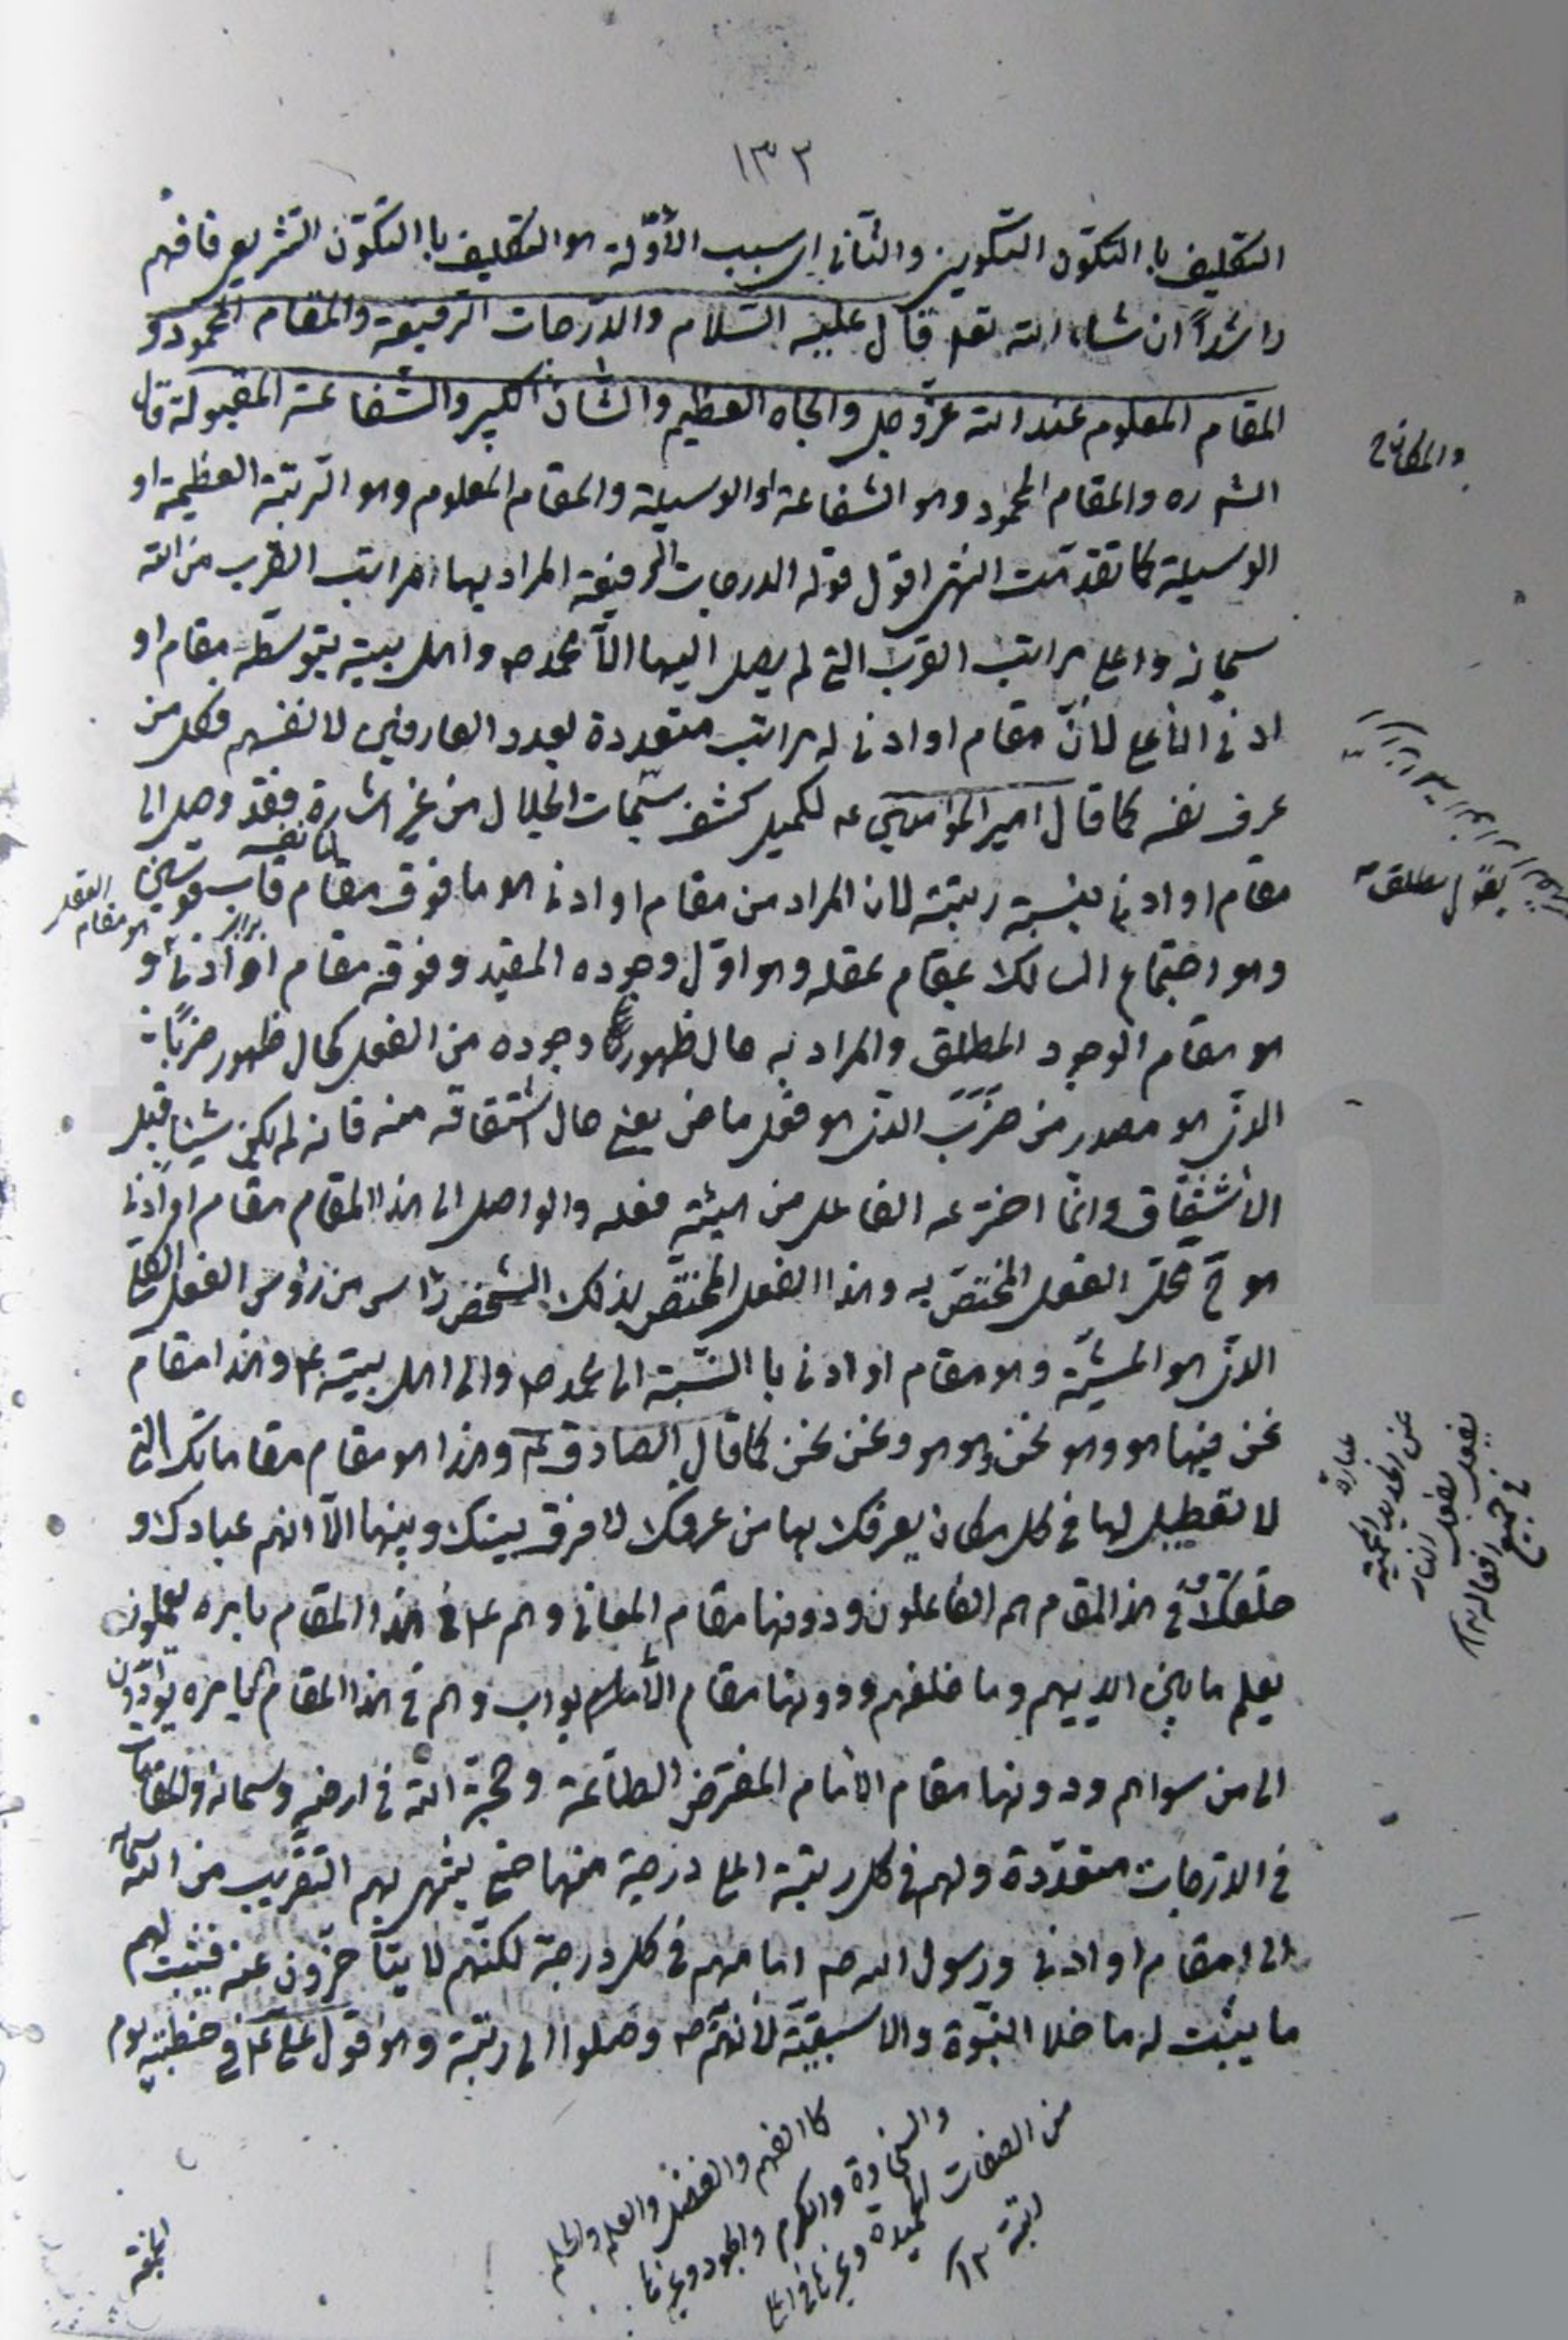 ١٣٢
التكليف با التكوّن التكويني والثاني اى سبب الأوّلة هو التكليف با التكوّن التشريعي فافهم
راشداً ان شاء الله تعا قال عليه السّلام والدّرجات الرّفيعة والمقام المحمود و
المقام المعلوم عند الله عزّوجل والجاه العظيم والشّان الكبير والشّفاعة المقبولة قال
والمكان
الشه ره والمقام المحمود وهو الشّفاعة او الوسيلة والمقام المعلوم وهو الرّتبة العظيمة او
الوسيلة كما تقدّمت انتهى اقول قوله الدرجات الرفيعة المراد بها مراتب القرب من الله
سبحانه واعلى مراتب القرب التي لم يصل اليها الّا محمد ص واهل بيته بتوسّطه مقام او
ادنى الأعلى لأنّ مقام او ادنى له مراتب متعددة بعدد العارفين لانفسهم فكل من
عرف نفسه كما قال امير المؤمنين ع لكميل كشف سبحات الجلال من غير اشارة فقد وصل الى
مقام او ادنى بنسبة رتبته لان المراد من مقام او ادنى هو ما فوق مقام قاب قوسين
هو مقام العقل
وهو اجتماع السالك بمقام عقله وهو اوّل وجوده المقيد وفوقه مقام او ادنى و
هو مقام الوجود المطلق والمراد به حال ظهور وجوده من الفعل كحال ظهور ضرباً
الذى هو مصدر من ضَرَبَ الذى هو فعل ماض يعنى حال اشتقاقه منه فانه لم يكن شيئا قبل
الأشتقاق وانّما اخترعه الفاعل من هيئة فعله والواصل الى هذا المقام مقام او ادنى
هو ح محلّ الفعل المختصّ به وهذا الفعل المختصّ بذلك الشّخص راس من رؤس الفعل الكلي
الذى هو المشيّة وهو مقام او ادنى با النّسبة الى محمد ص والى اهل بيته ع وهذا مقام
نحن فيها هو وهو نحن وهو هو ونحن نحن كما قال الصادق ع وهذا هو مقام مقاماتك التى
لا تعطيل لها في كل مكان يعرفك بها من عرفك لا فرق بينك وبينها الّا انهم عبادك و
خلقك وفى هذا المقام هم الفاعلون ودونها مقام المعانى وهم ع فى هذا المقام بامره يعملون
يعلم ما بين ايديهم وما خلفهم ودونها مقام الأبواب وهم فى هذا المقام بامره يؤدّون
الى من سواهم ودونها مقام الامام المفترض الطاعة وحجة الله فى ارضه وسمائه والمقامات
فى الدّرجات متعدّدة ولهم فى كل رتبة اعلى درجة منها حتى ينتهى بهم التقريب من الله تعالى
الى مقام او ادنى ورسول الله ص امامهم فى كل درجة لكنّهم لا يتأخّرون عنه فيثبت لهم
ما يثبت له ما خلا النبّوة والاسبقيّة لأنهم ص وصلوا الى رتبة وهو قول على ع فى خطبته يوم
كا الفهم والفضل والعلم والحلم
والسّخاوة والكرم والجود وغيرها
من الصفات الحميدة وغيرها فى اعلى
رتبة ١٢
الجمعة